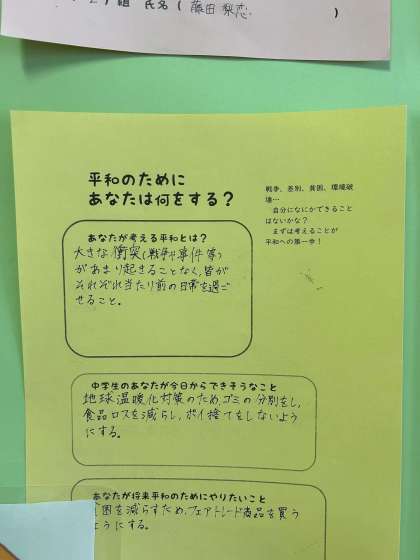 組 氏名 ( 藤田 梨恋 )
平和のために
あなたは何をする？
戦争、差別、貧困、環境破
壊…
自分になにかできること
はないかな？
まずは考えることが
平和への第一歩！
あなたが考える平和とは？
大きな衝突(戦争や事件等)
があまり起きることなく、皆が
それぞれ当たり前の日常を過ご
せること。
中学生のあなたが今日からできそうなこと
地球温暖化対策のため、ゴミの分別をし、
食品ロスを減らし、ポイ捨てをしないよう
にする。
あなたが将来平和のためにやりたいこと
困を減らすため、フェアトレード商品を買う
ようにする。